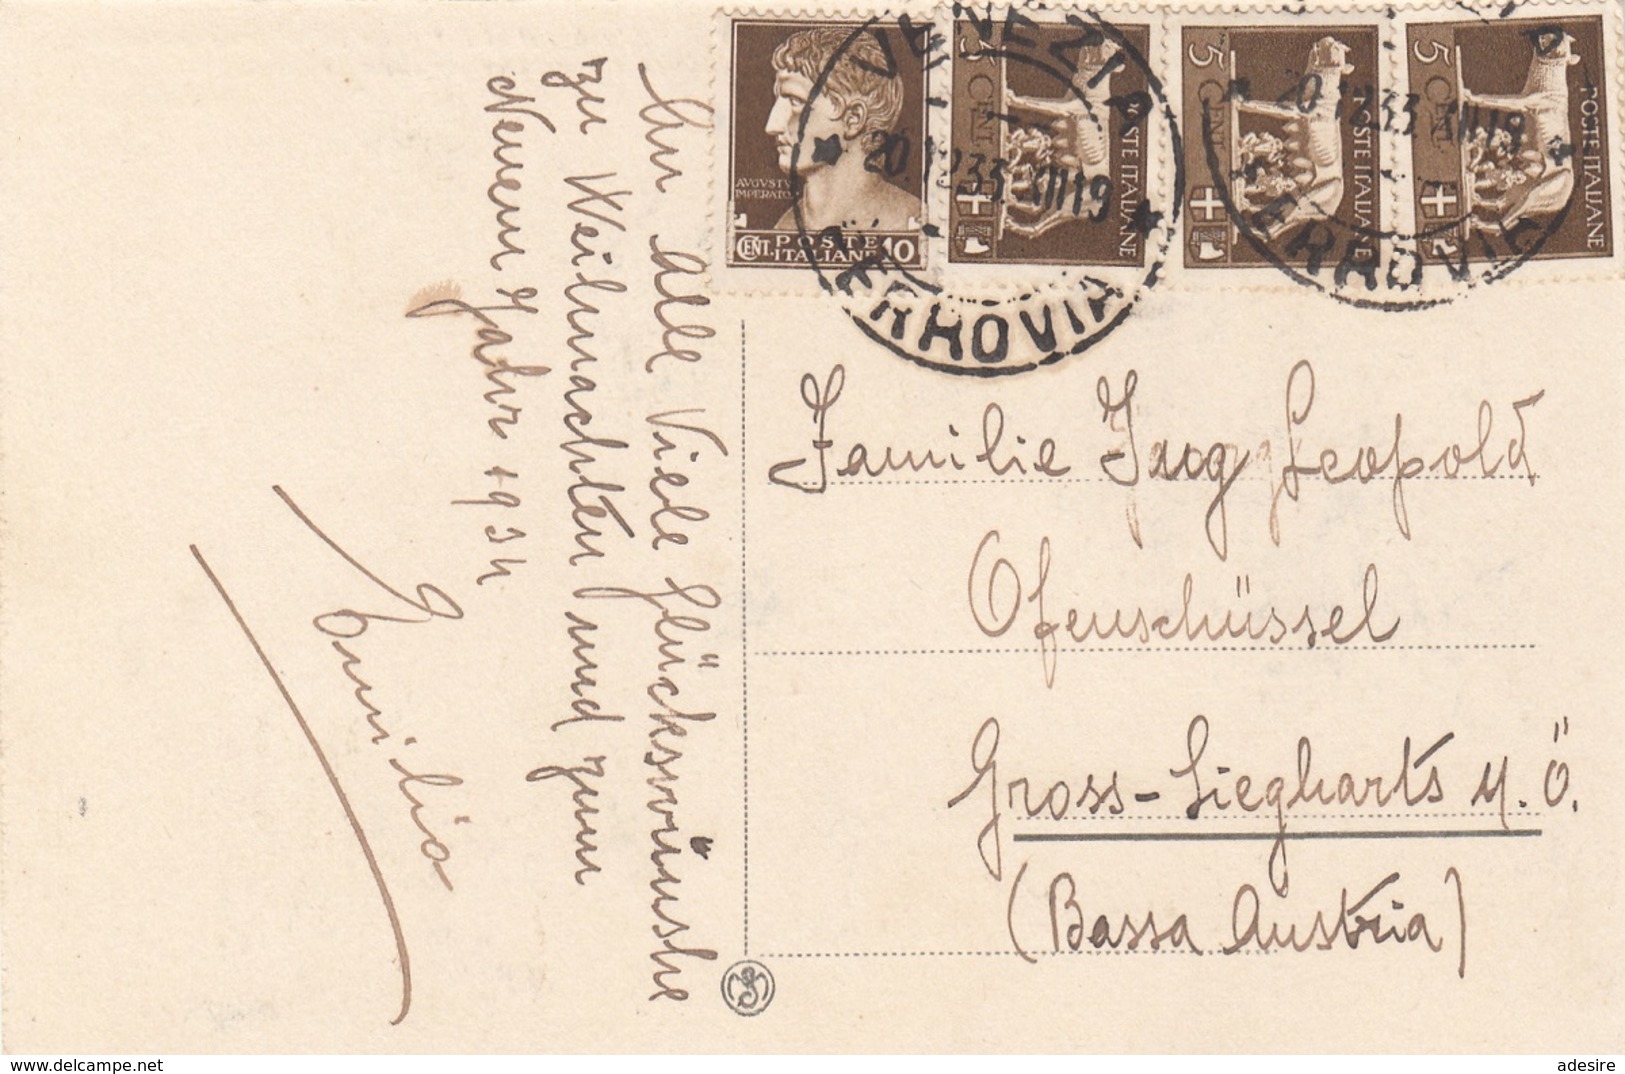 An Alle Viele Glückswünshe
zu Weihnachten und zum
Neuem Jahr 1934
Emilia
AVGVSTVS
IMPERATOR
CENT. POSTE
ITALIANE 10
5 CENT
POSTE ITALIANE
5 CENT
POSTE ITALIANE
5 CENT
POSTE ITALIANE
VENEZIA
20.12.33.XII 19
FERROVIA
20.12.33.XII 19
FERROVIA
Familie Leopold
Ofenschüssel
Gross-Siegharts N.Ö.
(Bassa Austria)
adesire